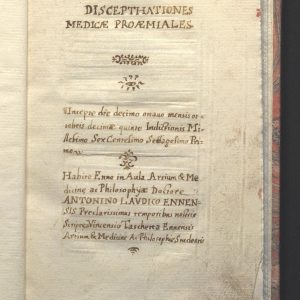 DISCEPTHATIONES
MEDICÆ PROÆMIALES
Incepte die decimo onauo mensis oc
tobris decimæ quinte Indictionis Mi
lesimo Sex Centesimo Setagesimo Pri
mo
Habite Enno in Aula Artium & Me
dicine ac Philosophyæ Doctore
ANTONINO LAUDICO ENNEN-
SIS Preclarissimus temporibus
Scripte Vincensio Tascherca Ennensis
Artium & Medicine Ac Philosophiæ